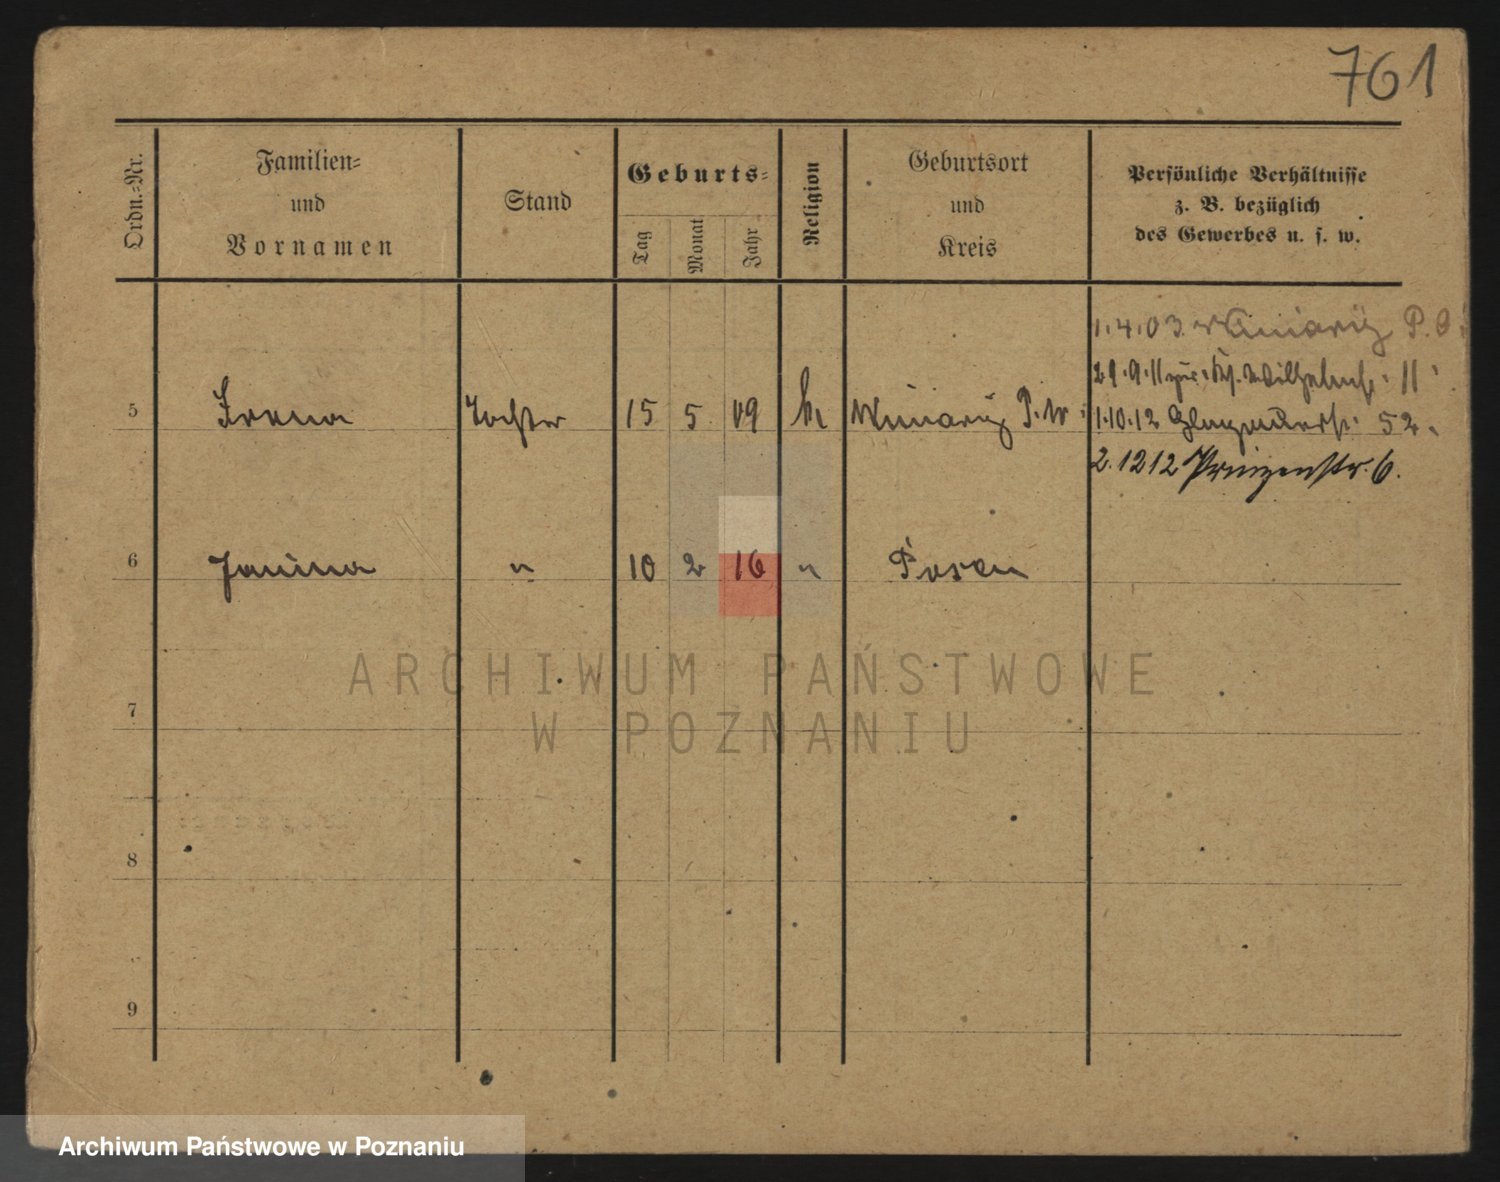 761
Ordn.-Nr.
Familien-
und
Vornamen
Stand
Geburts-
Tag
Monat
Jahr
Religion
Geburtsort
und
Kreis
Persönliche Verhältnisse
z. B. bezüglich
des Gewerbes u. s. w.
1.4.03. Winiary P. O.
29.9.11 11
5 Irena Tochter 15 5 09 k. Winiary P. W. 1.10.12 Glogauerstr. 52.
2.12 12 Prinzenstr. 6.
6 Janina " 10 2 16 " Posen
ARCHIWUM PAŃSTWOWE
7
W POZNANIU
8
9
Archiwum Państwowe w Poznaniu